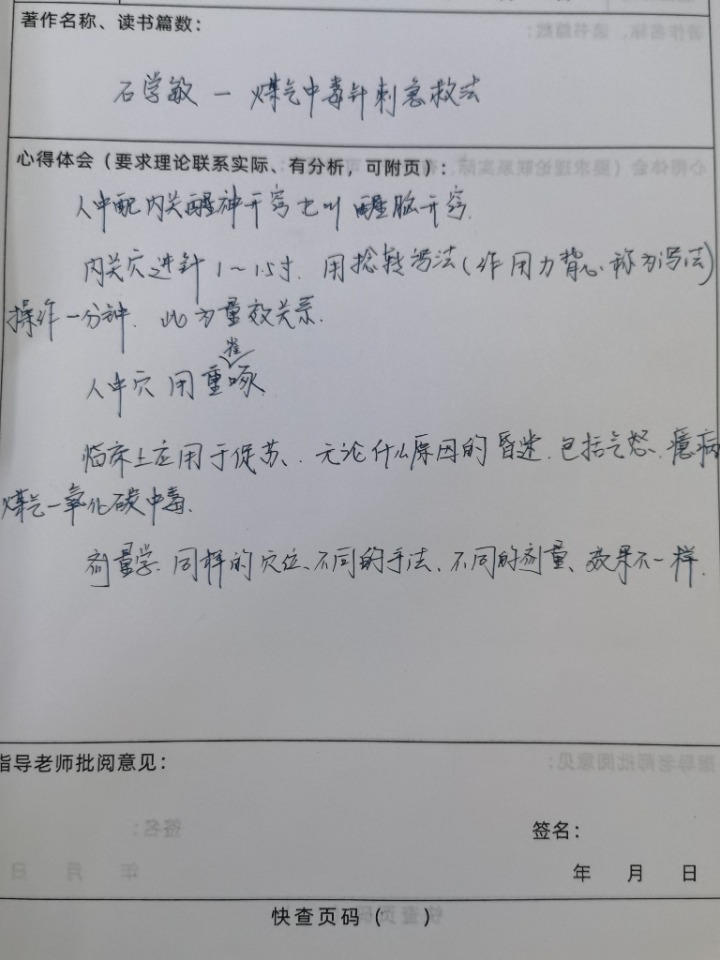 著作名称、读书篇数：
石学敏 — 煤气中毒针刺急救法
心得体会（要求理论联系实际、有分析，可附页）：
人中配内关醒神开窍也叫 醒脑开窍.
内关穴进针 1～1.5寸. 用捻转泻法(作用力背心.称为泻法)
操作一分钟. 此为量效关系.
人中穴 用重雀啄.
临床上应用于促苏、无论什么原因的昏迷.包括气怒、癔病
煤气一氧化碳中毒.
剂量学.同样的穴位、不同的手法、不同的剂量、效果不一样.
指导老师批阅意见：
签名：
年 月 日
快查页码（ ）